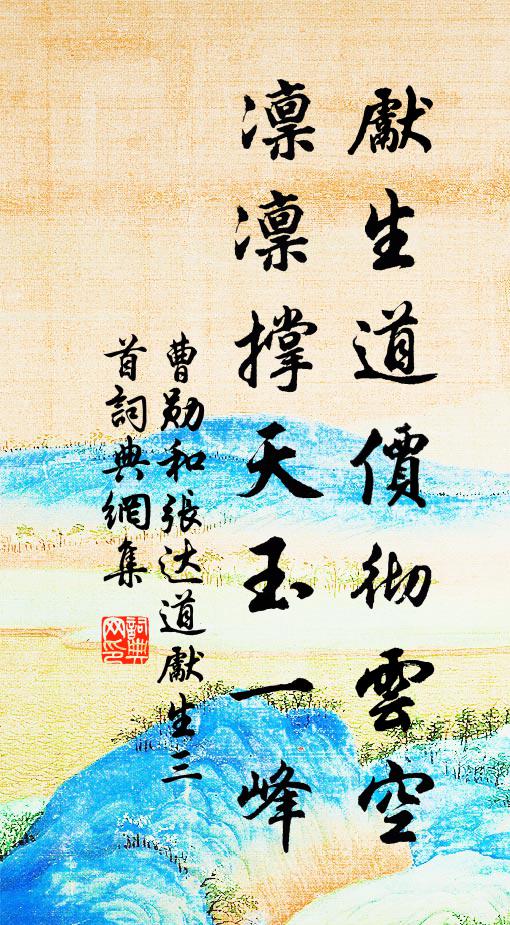 獻生道價彻雲空
凛凛撑天玉一峰
曹勋和張达道獻生三
首詞典網集
詞典
网印